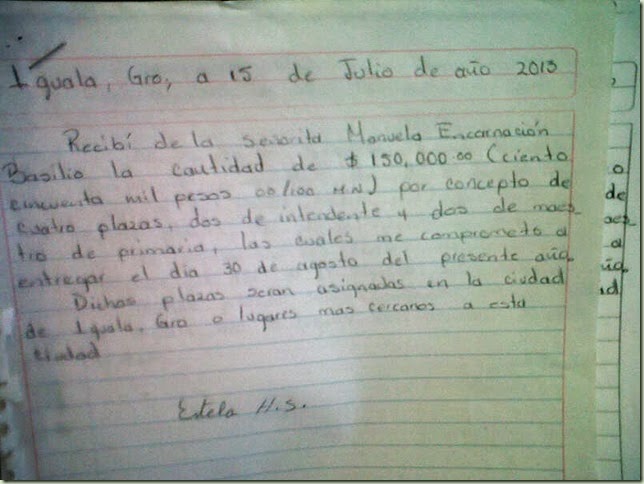 Iguala, Gro, a 15 de Julio de año 2013
Recibí de la señorita Manuela Encarnación
Basilio la cantidad de $ 150,000.00 (ciento
cincuenta mil pesos 00/100 M.N.) por concepto de
cuatro plazas, dos de intendente y dos de maes-
tro de primaria, las cuales me comprometo a
entregar el dia 30 de agosto del presente año.
Dichas plazas seran asignadas en la ciudad
de Iguala, Gro o lugares mas cercanos a esta
ciudad
Estela H.S.
o
de
a